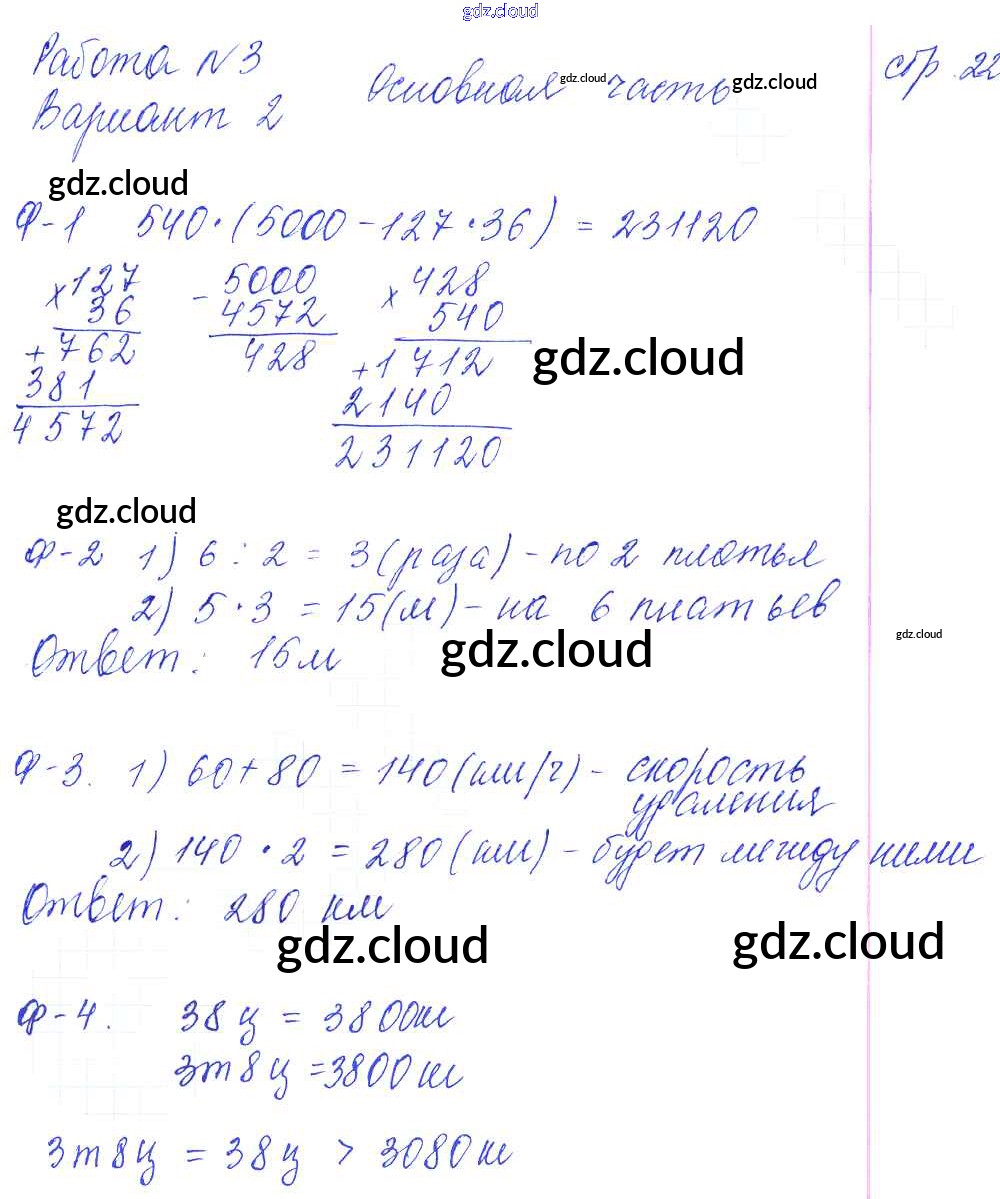 gdz.cloud
Работа №3
Вариант 2
Основная часть
gdz.cloud
gdz.cloud
стр. 22
gdz.cloud
Ф-1 540·(5000-127·36) = 231120
×127
36
+762
381
4572
-5000
4572
428
×428
540
+1712
2140
231120
gdz.cloud
gdz.cloud
Ф-2 1) 6:2 = 3(раза) - по 2 платья
2) 5·3 = 15(м) - на 6 платьев
Ответ: 15м
gdz.cloud
gdz.cloud
Ф-3. 1) 60+80 = 140(км/ч) - скорость
удаления
2) 140·2 = 280(км) - будет между ними
Ответ: 280 км
gdz.cloud
gdz.cloud
Ф-4. 38ц = 3800кг
3т8ц =3800кг
3т8ц = 38ц > 3080кг